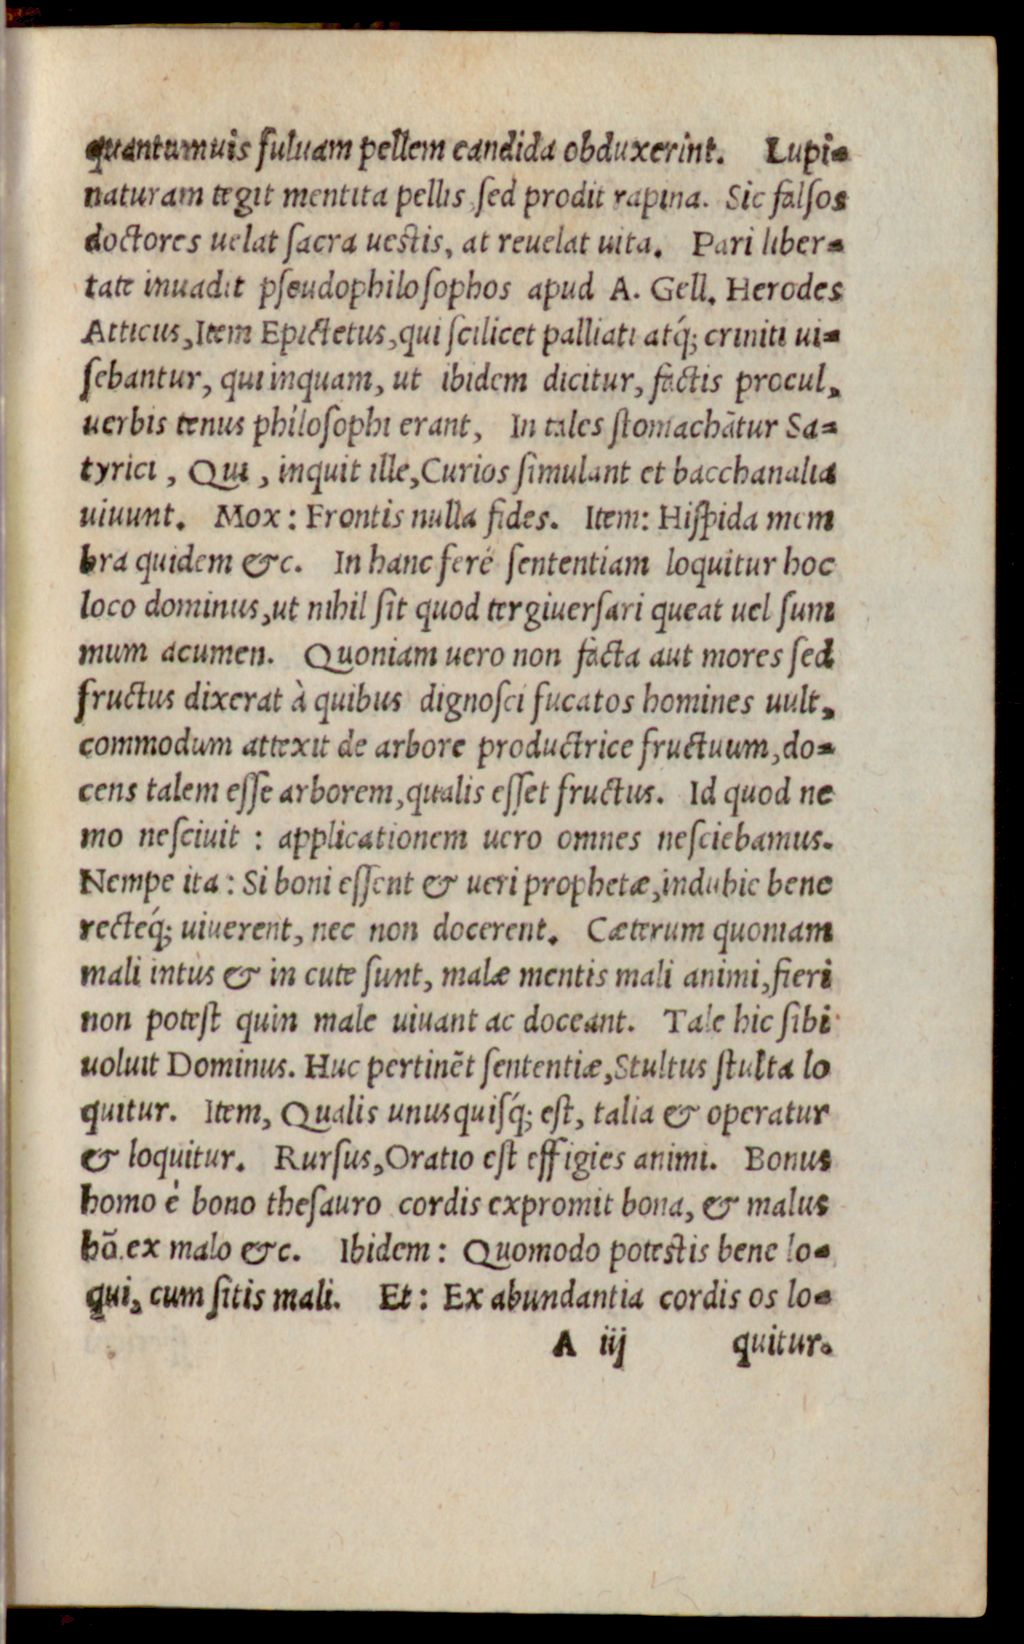 quantumuis fuluam pellem candida obduxerint. Lupi-
naturam tegit mentita pellis, sed prodit rapina. Sic falsos
doctores uelat sacra uestis, at reuelat uita. Pari liber-
tate inuadit pseudophilosophos apud A. Gell. Herodes
Atticus, Item Epictetus, qui scilicet palliati atq́; criniti ui-
sebantur, qui inquam, ut ibidem dicitur, factis procul,
uerbis tenus philosophi erant, In tales stomachātur Sa-
tyrici, Qui, inquit ille, Curios simulant et bacchanalia
uiuunt. Mox: Frontis nulla fides. Item: Hispida mem
bra quidem &c. In hanc ferè sententiam loquitur hoc
loco dominus, ut nihil sit quod tergiuersari queat uel sum
mum acumen. Quoniam uero non facta aut mores sed
fructus dixerat à quibus dignosci fucatos homines uult,
commodum attexit de arbore productrice fructuum, do-
cens talem esse arborem, qualis esset fructus. Id quod ne
mo nesciuit : applicationem uero omnes nesciebamus.
Nempe ita: Si boni essent & ueri prophetæ, indubie bene
recteq́; uiuerent, nec non docerent. Cæterum quoniam
mali intùs & in cute sunt, malæ mentis mali animi, fieri
non potest quin male uiuant ac doceant. Tale hic sibi
uoluit Dominus. Huc pertinēt sententiæ, Stultus stulta lo
quitur. Item, Qualis unusquisq́; est, talia & operatur
& loquitur. Rursus, Oratio est effigies animi. Bonus
homo è bono thesauro cordis expromit bona, & malus
hō. ex malo &c. Ibidem: Quomodo potestis bene lo-
qui, cum sitis mali. Et: Ex abundantia cordis os lo-
A iij quitur.